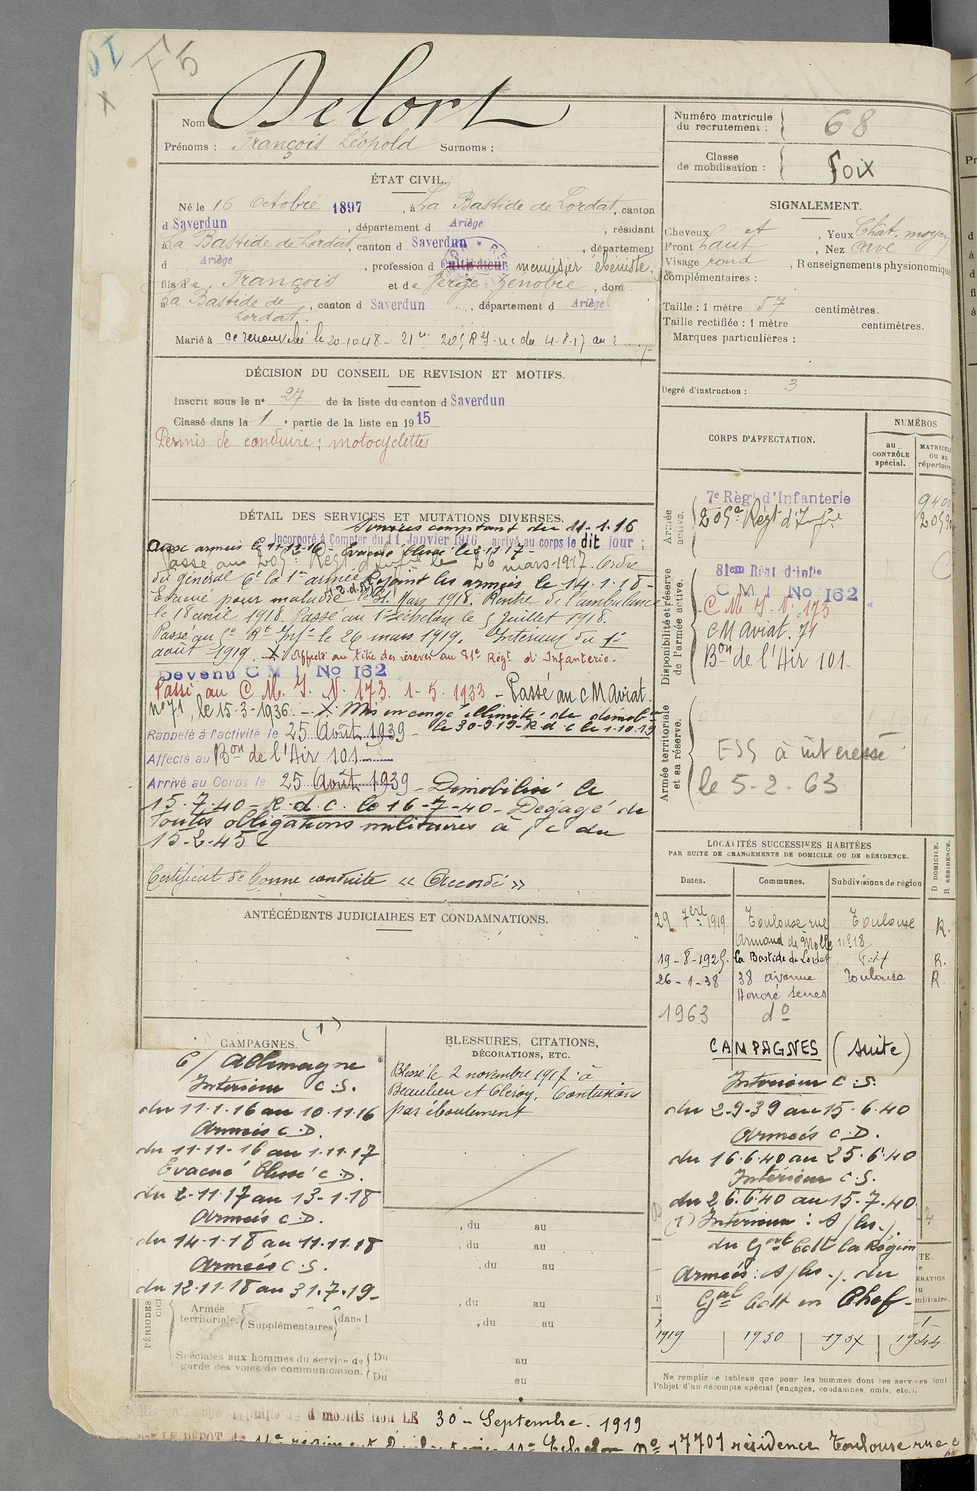 F5
Nom Delort
Prénoms : François Léopold Surnoms :
Numéro matricule du recrutement : 68
Classe de mobilisation : Foix
ÉTAT CIVIL.
Né le 16 Octobre 1897, à La Bastide de Lordat, canton
d Saverdun, département d Ariège, résidant
à La Bastide de Lordat, canton d Saverdun, département
d Ariège, profession d Cultivateur menuisier ébéniste,
fils de François et de Zénobie, dom
La Bastide de Lordat, canton d Saverdun, département d Ariège
Marié à
SIGNALEMENT.
Cheveux, Yeux Chat. moyen
Front haut, Nez cave
Visage rond, Renseignements physionomiques
complémentaires :
Taille : 1 mètre 57 centimètres.
Taille rectifiée : 1 mètre centimètres.
Marques particulières :
Degré d'instruction : 3
DÉCISION DU CONSEIL DE REVISION ET MOTIFS.
Inscrit sous le n° 27 de la liste du canton d Saverdun
Classé dans la 1e partie de la liste en 1915
Permis de conduire ; motocyclettes
CORPS D'AFFECTATION.
NUMÉROS
au CONTRÔLE spécial.
MATRICULE ou au répertoire
Armée active.
7e Régt d'Infanterie
209e Régt d'Infrie
Disponibilité et réserve de l'armée active.
81em Régt d'infie
C M I No 162
C. M. I. N. 173
CM Aviat. 71
Bon de l'Air 101.
Armée territoriale et sa réserve.
ESS à intéressé
le 5-2-63
DÉTAIL DES SERVICES ET MUTATIONS DIVERSES.
Services comptant du 11-1-16
Incorporé à Compter du 11 Janvier 1916, arrivé au corps le dit jour ;
Evacué blessé le 2-11-17
Passé au 209e Régt d'Infrie le 26 mars 1917. Ordre
du général Ct la 1re armée. Rejoint les armées le 14-1-18-
Evacué pour maladie le 31 Mars 1918. Rentré de l'ambulance
le 18 avril 1918. Passé au 1er échelon le 5 Juillet 1918.
Passé au Rt Infie le 26 mars 1919. Intérieur du 1er
août 1919. X Affecté au titre des réserves au 81e Régt d'Infanterie.
Devenu C M I No 162
Passé au C. M. I. N. 173. 1-5. 1933 - Passé au CM Aviat.
n° 71, le 15-3-1936. - X Mis en congé illimité de démob
le 30-9-19 - R d c le 1.10.19
Rappelé à l'activité le 25 Août 1939
Affecté au Bon de l'Air 101
Arrivé au Corps le 25 Août 1939 - Démobilisé le
15-7-40 - R. d. c. le 16-7-40 - Dégagé de
toutes obligations militaires à /c du
Certificat de bonne conduite « Accordé »
ANTÉCÉDENTS JUDICIAIRES ET CONDAMNATIONS.
LOCALITÉS SUCCESSIVES HABITÉES
PAR SUITE DE CHANGEMENTS DE DOMICILE OU DE RÉSIDENCE.
Dates. Communes. Subdivisions de région D DOMICILE. R RÉSIDENCE.
29 7bre 1919 Toulouse rue Toulouse R.
n° 18
19-8-1925. La Bastide de Lordat Foix R.
26-1-38 38 avenue Honoré Serres Toulouse R
1963 do
CAMPAGNES. (1)
C/ Allemagne
Intérieur C.S.
du 11-1-16 au 10-11-16
Armées C.D.
du 11-11-16 au 1-11-17
Evacué blessé C.D.
du 2-11-17 au 13-1-18
Armées C.D.
du 14-1-18 au 11-11-18
Armées C.S.
du 12-11-18 au 31-7-19-
BLESSURES, CITATIONS,
DÉCORATIONS, ETC.
Blessé le 2 novembre 1917 : à
Beaulieu et Contusions
par éboulement
, du au
, du au
, du au
, du au
CAMPAGNES (suite)
Intérieur C.S.
du 2-9-39 au 15-6-40
Armées C.D.
du 16-6-40 au 25-6-40
Intérieur C.S.
du 26-6-40 au 15-7-40.
(1) Intérieur :
du Gral Cdt la Région
Armées :
Gral Cdt en Chef-
Armée territoriale. Supplémentaires dans l
Spéciales aux hommes du service de garde des voies de communication. Du au
Du au
Ne remplir ce tableau que pour les hommes dont les services font
l'objet d'un décompte spécial (engagés, condamnés, omis, etc.).
30 - Septembre. 1919
n° 17701 résidence Toulouse rue